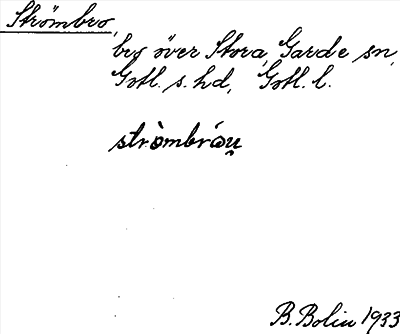 Strömbro,
bro över Stora, Garde sn,
Gotl. s. hd, Gotl. l.
stròmbráu̯
B. Bolin 1933